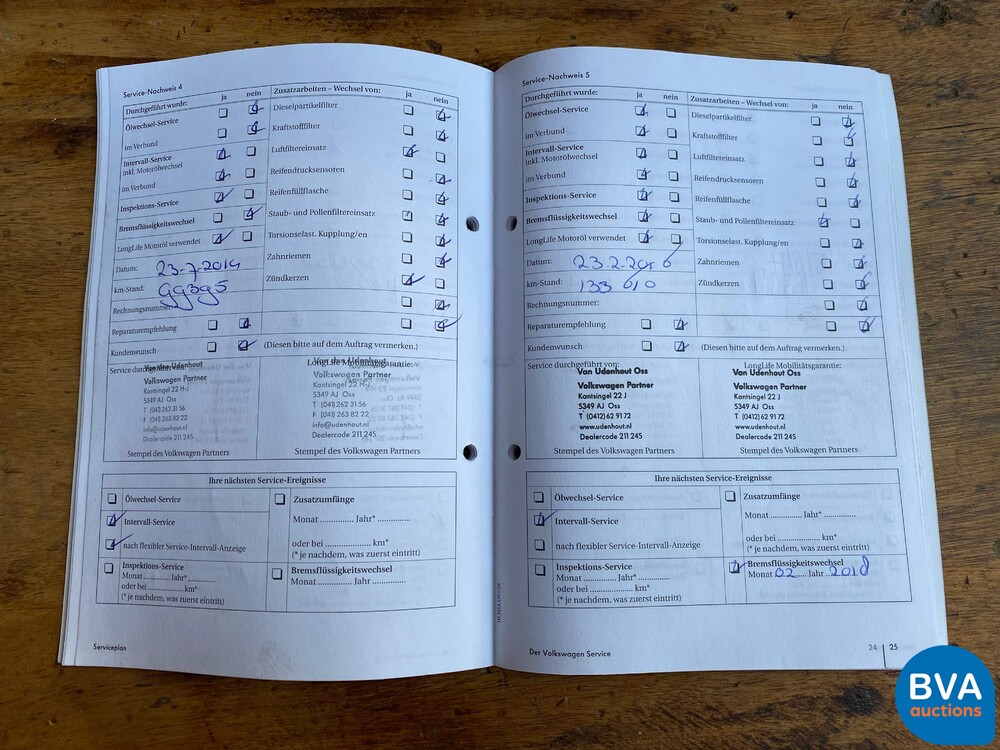 Service-Nachweis 4
Durchgeführt wurde: ja nein
Ölwechsel-Service
im Verbund
Intervall-Service
inkl. Motorölwechsel
im Verbund
Inspektions-Service
Bremsflüssigkeitswechsel
LongLife Motoröl verwendet
Datum: 23-7-2014
km-Stand: 99395
Rechnungsnummer:
Reparaturempfehlung
Kundenwunsch
Zusatzarbeiten – Wechsel von: ja nein
Dieselpartikelfilter
Kraftstofffilter
Luftfiltereinsatz
Reifendrucksensoren
Reifenfüllflasche
Staub- und Pollenfiltereinsatz
Torsionselast. Kupplung/en
Zahnriemen
Zündkerzen
(Diesen bitte auf dem Auftrag vermerken.)
Service durchgeführt von:
Van den Udenhout
Volkswagen Partner
Kantsingel 22 H-J
5349 AJ Oss
T (041) 262 31 56
F (041) 263 82 22
info@udenhout.nl
Dealercode 211 245
Stempel des Volkswagen Partners
LongLife Mobilitätsgarantie:
Van den Udenhout
Volkswagen Partner
Kantsingel 22 H-J
5349 AJ Oss
T (041) 262 31 56
F (041) 263 82 22
info@udenhout.nl
Dealercode 211 245
Stempel des Volkswagen Partners
Ihre nächsten Service-Ereignisse
Ölwechsel-Service
Intervall-Service
nach flexibler Service-Intervall-Anzeige
Inspektions-Service
Monat .......... Jahr* ..........
oder bei .................. km*
(* je nachdem, was zuerst eintritt)
Zusatzumfänge
Monat ............ Jahr* ............
oder bei .................. km*
(* je nachdem, was zuerst eintritt)
Bremsflüssigkeitswechsel
Monat ............ Jahr ............
Serviceplan
Service-Nachweis 5
Durchgeführt wurde: ja nein
Ölwechsel-Service
im Verbund
Intervall-Service
inkl. Motorölwechsel
im Verbund
Inspektions-Service
Bremsflüssigkeitswechsel
LongLife Motoröl verwendet
Datum: 23-2-2016
km-Stand: 133 010
Rechnungsnummer:
Reparaturempfehlung
Kundenwunsch
Zusatzarbeiten – Wechsel von: ja nein
Dieselpartikelfilter
Kraftstofffilter
Luftfiltereinsatz
Reifendrucksensoren
Reifenfüllflasche
Staub- und Pollenfiltereinsatz
Torsionselast. Kupplung/en
Zahnriemen
Zündkerzen
(Diesen bitte auf dem Auftrag vermerken.)
Service durchgeführt von:
Van Udenhout Oss
Volkswagen Partner
Kantsingel 22 J
5349 AJ Oss
T (0412) 62 91 72
www.udenhout.nl
Dealercode 211 245
Stempel des Volkswagen Partners
LongLife Mobilitätsgarantie:
Van Udenhout Oss
Volkswagen Partner
Kantsingel 22 J
5349 AJ Oss
T (0412) 62 91 72
www.udenhout.nl
Dealercode 211 245
Stempel des Volkswagen Partners
Ihre nächsten Service-Ereignisse
Ölwechsel-Service
Intervall-Service
nach flexibler Service-Intervall-Anzeige
Inspektions-Service
Monat ............ Jahr* ............
oder bei .................. km*
(* je nachdem, was zuerst eintritt)
Zusatzumfänge
Monat ............ Jahr* ............
oder bei .................. km*
(* je nachdem, was zuerst eintritt)
Bremsflüssigkeitswechsel
Monat 02 Jahr 2018
Der Volkswagen Service
24 25
BVA
auctions